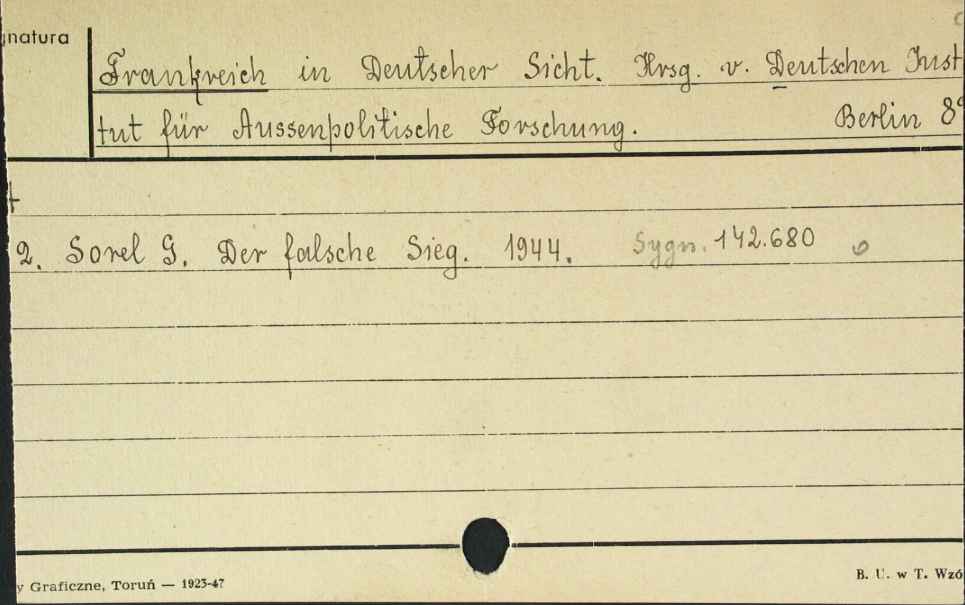 natura
Frankreich in Deutscher Sicht. Hrsg. v. Deutschen Inst
tut für Aussenpolitische Forschung. Berlin 8°
2. Sorel G. Der falsche Sieg. 1944. Sygn. 142.680
y Graficzne, Toruń — 1925-47
B. U. w T. Wzó